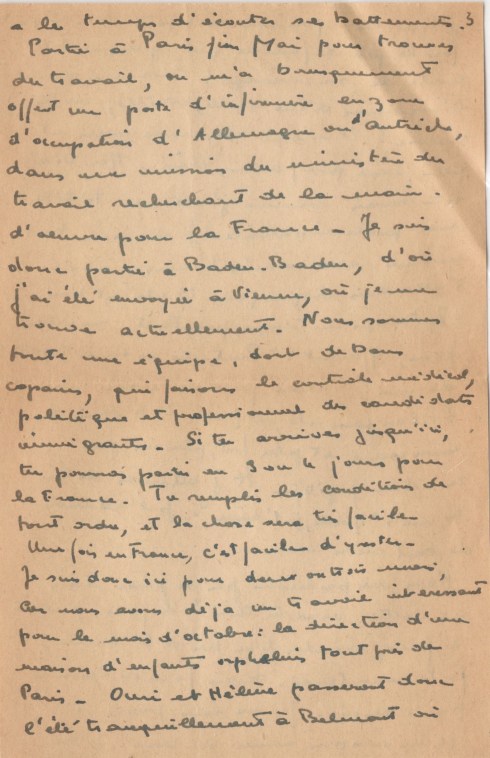 a le temps d'écouter ses battements. 3
Partie à Paris fin Mai pour trouver
du travail, on m'a brusquement
offert un poste d'infirmière en zone
d'occupation d'Allemagne ou d'Autriche,
dans une mission du ministère du
travail recherchant de la main-
d'oeuvre pour la France - Je suis
donc partie à Baden-Baden, d'où
j'ai été envoyée à Vienne, où je me
trouve actuellement. Nous sommes
toute une équipe, dont de bons
copains, qui faisons le contrôle médical,
politique et professionnel des candidats
immigrants. Si tu arrives jusqu'ici,
tu pourras partir en 3 ou 4 jours pour
la France. Tu remplis les conditions de
tout ordre, et la chose sera très facile
Une fois en France, c'est facile d'y rester -
Je suis donc ici pour deux ou trois mois,
car nous avons déjà un travail intéressant
pour le mois d'octobre : la direction d'une
maison d'enfants orphelins tout près de
Paris - et Hélène passeront donc
l'été tranquillement à Belmont où